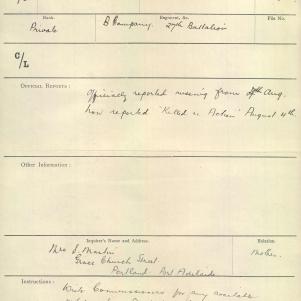 Rank. Regiment, &c. File No.
Private B Company. 27th Battalion
C/L
OFFICIAL REPORTS:
Officially reported missing from 4th Aug.
now reported "Killed in Action" August 4th.
Other Information:
Inquirer's Name and Address. Relation.
Mrs J. Martin Mother.
Grace Church Street.
Portland Port Adelaide
Instructions:
Write Commissioners for any available